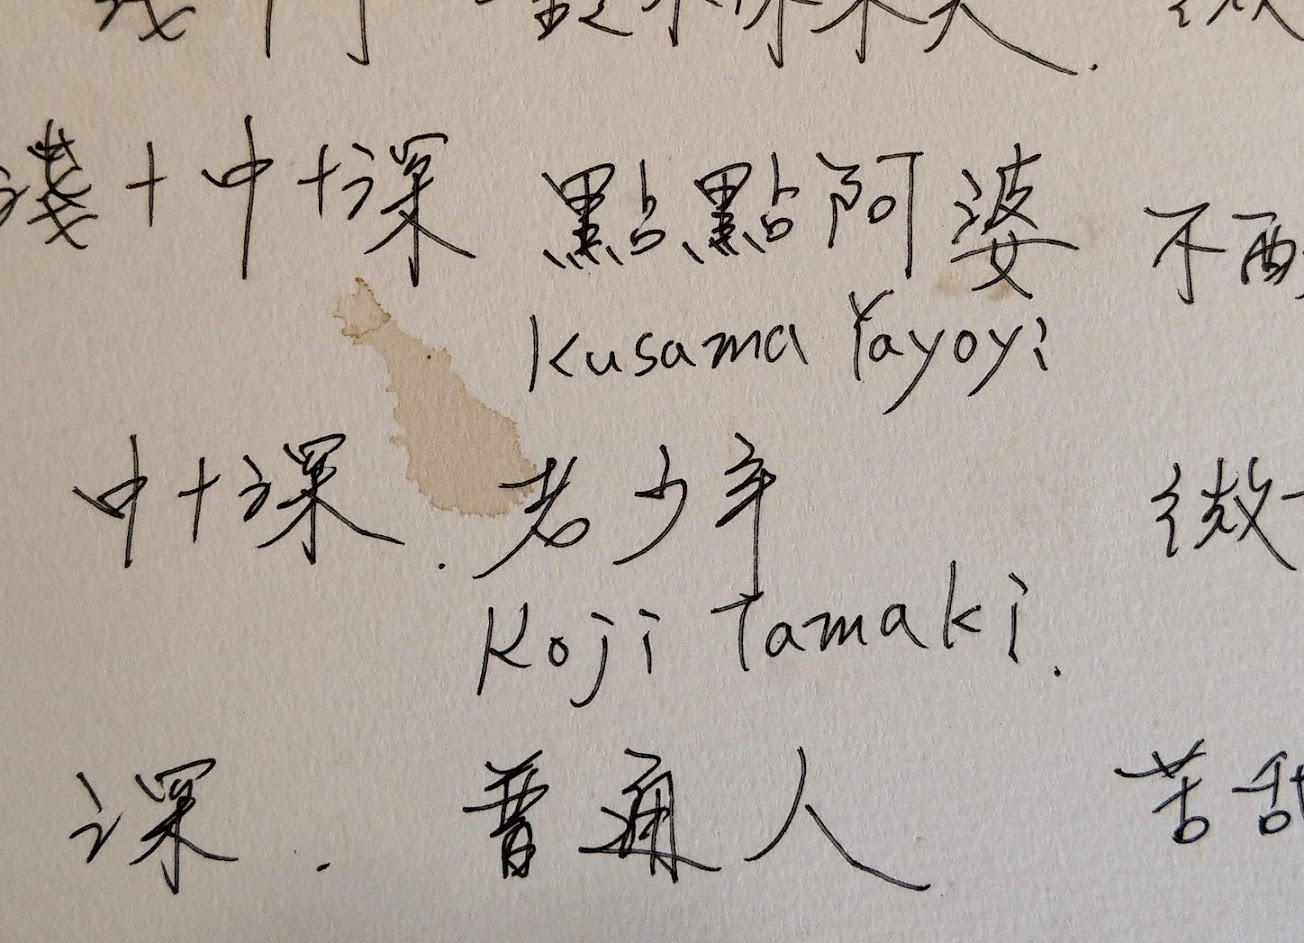 淺+中+深 點點阿婆 不酸
Kusama Yayoyi
中+深. 老少年 微
Koji Tamaki.
深. 普通人 苦甜